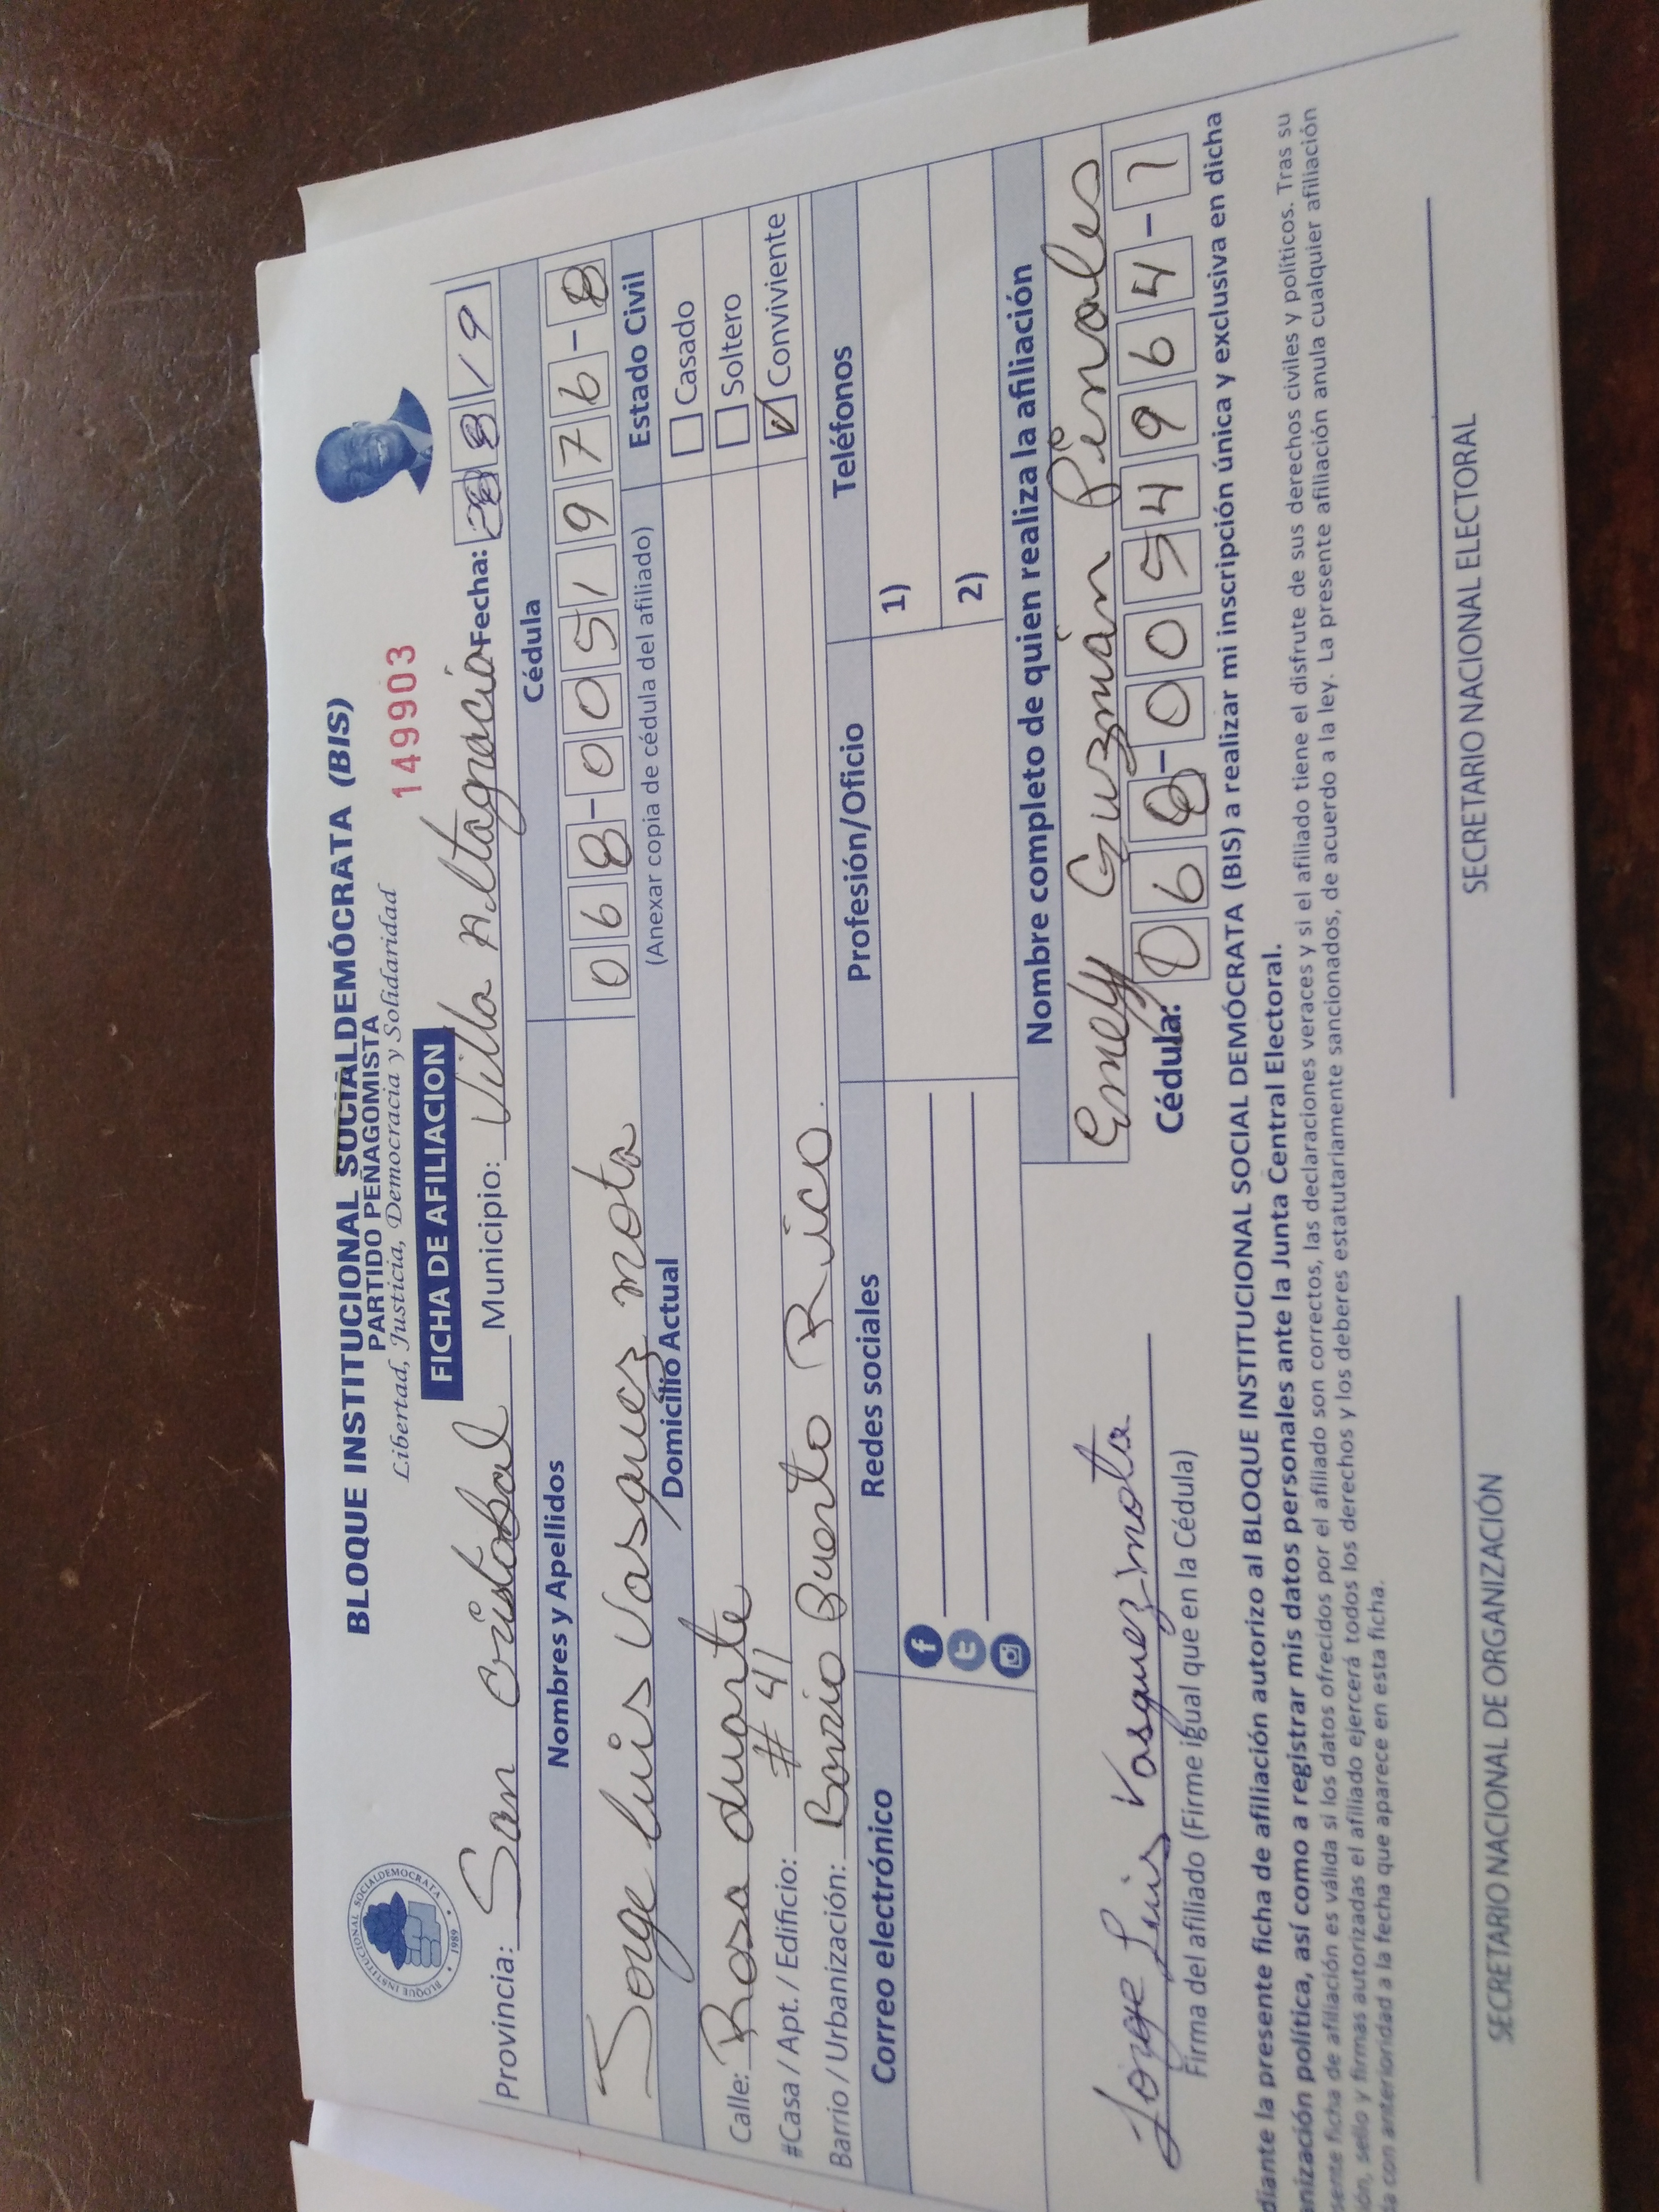 BLOQUE INSTITUCIONAL SOCIALDEMÓCRATA (BIS)
PARTIDO PEÑAGOMISTA
Libertad, Justicia, Democracia y Solidaridad
149903
FICHA DE AFILIACION
BLOQUE INSTITUCIONAL SOCIALDEMOCRATA
1989
Provincia: San Cristobal Municipio: Villa Altagracia Fecha: 8 19
Nombres y Apellidos Cédula
Jorge Luis Vasquez mota 068-0051976-8
(Anexar copia de cédula del afiliado)
Domicilio Actual Estado Civil
Calle: Rosa duarte
Casado
#Casa / Apt. / Edificio: # 41
Soltero
Barrio / Urbanización: Barrio Puerto Rico.
Conviviente
Correo electrónico Redes sociales Profesión/Oficio Teléfonos
1)
2)
Nombre completo de quien realiza la afiliación
Emely Guzmán Pinales
Jorge Luis Vasquez mota
Cédula: 068-0054964-1
Firma del afiliado (Firme igual que en la Cédula)
diante la presente ficha de afiliación autorizo al BLOQUE INSTITUCIONAL SOCIAL DEMÓCRATA (BIS) a realizar mi inscripción única y exclusiva en dicha
anización política, así como a registrar mis datos personales ante la Junta Central Electoral.
sente ficha de afiliación es válida si los datos ofrecidos por el afiliado son correctos, las declaraciones veraces y si el afiliado tiene el disfrute de sus derechos civiles y políticos. Tras su
ión, sello y firmas autorizadas el afiliado ejercerá todos los derechos y los deberes estatutariamente sancionados, de acuerdo a la ley. La presente afiliación anula cualquier afiliación
ta con anterioridad a la fecha que aparece en esta ficha.
SECRETARIO NACIONAL DE ORGANIZACIÓN SECRETARIO NACIONAL ELECTORAL